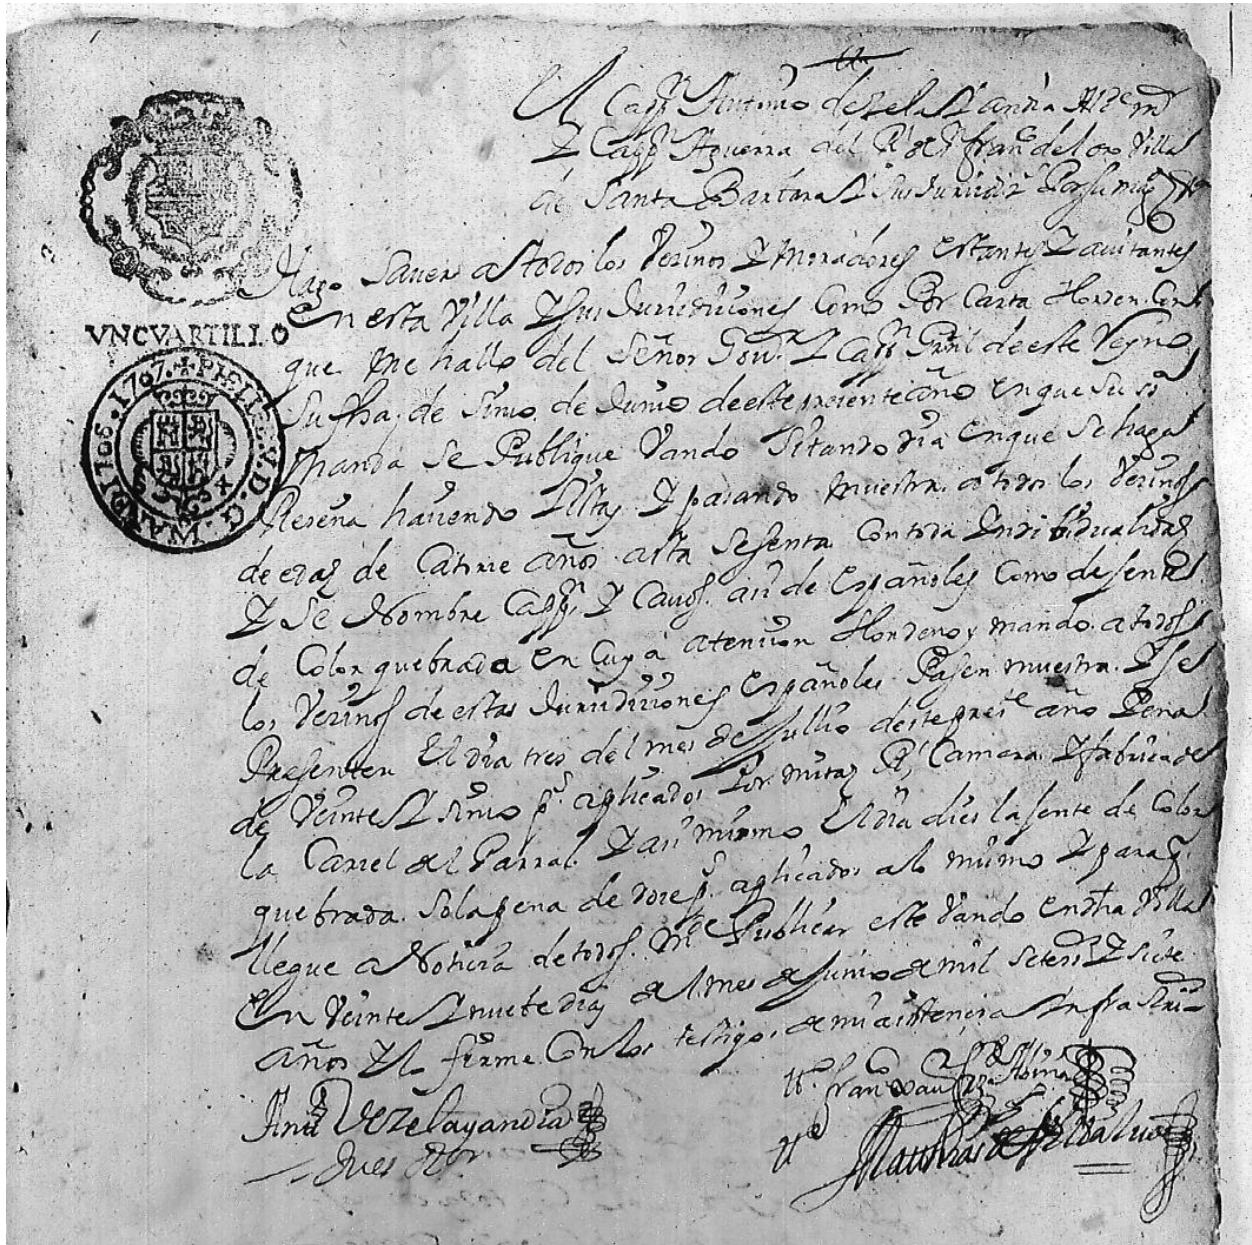 El Capp.n Antonio de Zelaiandia Alc.e m.r
Y Capp.n Aguerra del R.l de S.n Fran.co del oro Villa
de Santa Barbara Y Sus Juridiz.s Por su mag.d
Hago Saver a todos los Vecinos Y Moradores estantes Y auitantes
en esta Villa Y Sus Juridiciones Como Por Carta Horden Con
que me hallo del Señor Gov.r Y Capp.n Grãl de este Reyno
Su fha. de Sinco de Junio de este presente año en que Su S.a
Manda Se Publique Vando Sitando dia en que Se haga
Reseña haciendo Listas Y pasando muestra a todos los Vecinos
de edad de Catorce años asta Sesenta Con toda Yndibidualidad
Y Se Nombre Capp.n Y Cauos. asi de españoles Como de Jentes
de Color quebrada en Cuya atencion Hordeno y mando a todos
los Vecinos de estas Juridiciones españoles Pasen muestra Y se
Presenten El dia tres del mes de Jullio deste pres.te año Pena
de Veinte Y Sinco p.s aplicados Por mitad R.l Camara Y fabrica de
la Carcel del Parral. Y asi mismo El dia dies la Jente de Color
quebrada Sola pena de doce p.s aplicados a lo mismo Y para q.
llegue a Noticia de todos. M.de Publicar este Vando en dha Villa
en Veinte Y nuebe dias del mes de Junio de mil Setes.os Y Siete
años Y lo firme Con los testigos de mi asistencia Ynfra Scri-
Ant.o de Zelayandia
Jues R.or
t.o Fran.co Xau.r
t.o Matthias de
VN CVARTILLO
1706. 1707. PHILIP. V. D. G.